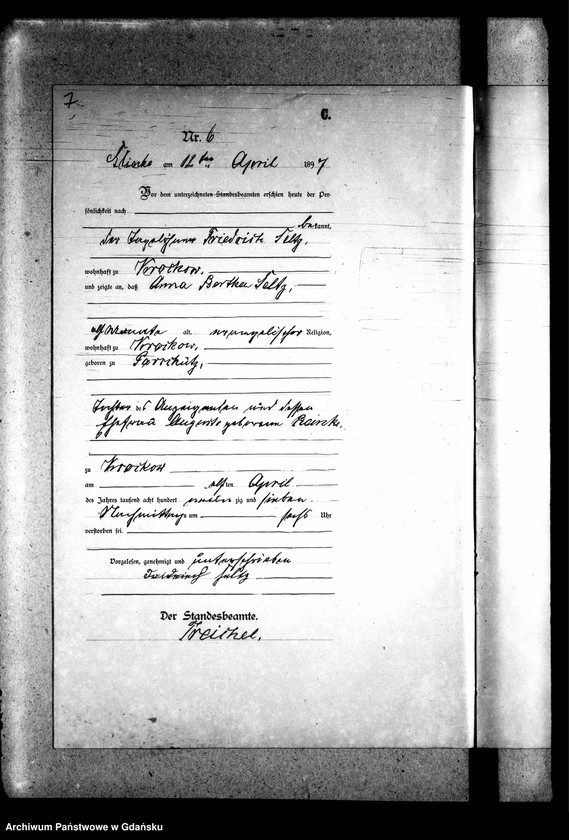 7
C.
Nr. 6
am 12ten April 1897
Vor dem unterzeichneten Standesbeamten erschien heute der Per-
sönlichkeit nach
bekannt,
der Tagelöhner Friedrich Seltz,
wohnhaft zu Krockow,
und zeigte an, daß Anna Bertha Seltz,
elf Monate alt, evangelischer Religion,
wohnhaft zu Krockow,
geboren zu
Tochter des Anzeigenden und dessen
Ehefrau Auguste geborene
zu Krockow
am elften April
des Jahres tausend acht hundert neunzig und sieben
Nachmittags um sechs Uhr
verstorben sei.
Vorgelesen, genehmigt und unterschrieben
Friedrich Seltz
Der Standesbeamte.
Treichel.
Archiwum Państwowe w Gdańsku